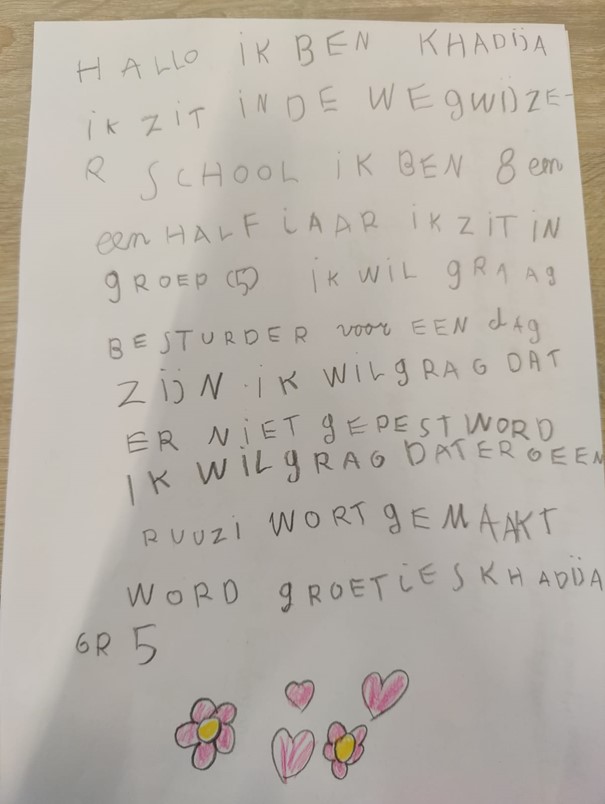 HALLO iK BEN KHADIJA
iK ZiT iN DE WEgWIJZE-
R SCHOOL iK BEN 8 em
een HALF iAAR iK ZiT iN
gROEP (5) iK WiL gRAAg
BESTURDER voor EEN dAg
ZIJN iK WiLgRAG DAT
ER NiET gEPEST WORD
IK WiLgRAG DAT ER GEEN
RUUZi WORT gEMAAKT
WORD gROETiES KHADIJA
GR 5